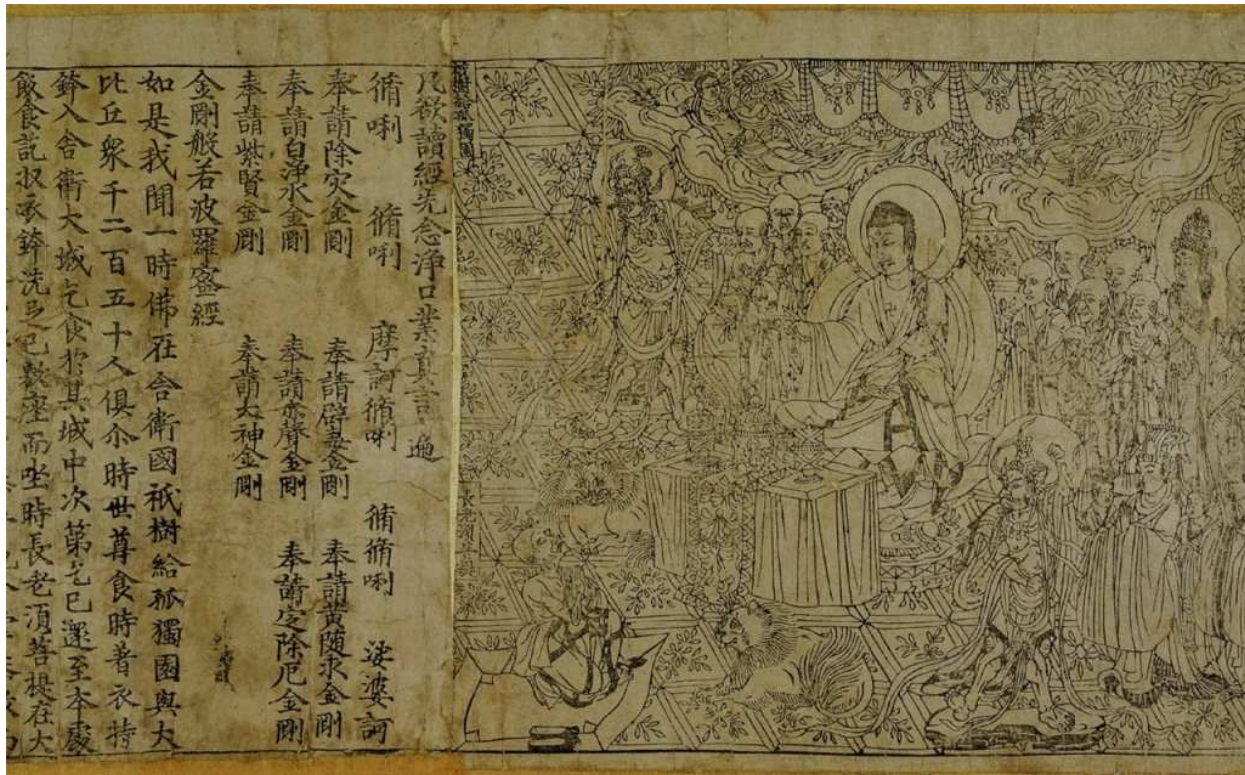 祇樹給孤獨園
長老須菩提
凡欲讀經先念淨口業真言遍
脩唎 脩唎 摩訶脩唎 脩脩唎 娑婆訶
奉請除灾金剛 奉請辟毒金剛 奉請黃隨求金剛
奉請白淨水金剛 奉請赤聲金剛 奉請定除厄金剛
奉請紫賢金剛 奉請大神金剛
金剛般若波羅蜜經
如是我聞一時佛在舍衛國祇樹給孤獨園與大
比丘衆千二百五十人俱尒時世尊食時著衣持
鉢入舍衛大城乞食於其城中次第乞已還至本處
飯食訖收衣鉢洗足已敷座而坐時長老須菩提在大